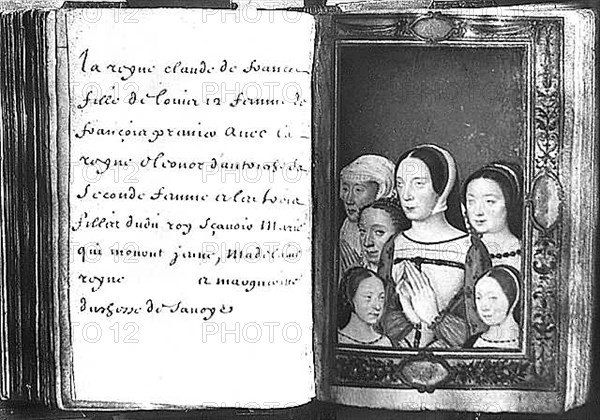 La royne claude de france
fille de louis 12 femme de
françois premier avec la
royne eleonor d'autriche sa
seconde femme et les trois
filles dudit roy sçavoir Marie
qui mourut jeune, Madelaine
royne et marguerite
duchesse de Savoye
PHOTO 12